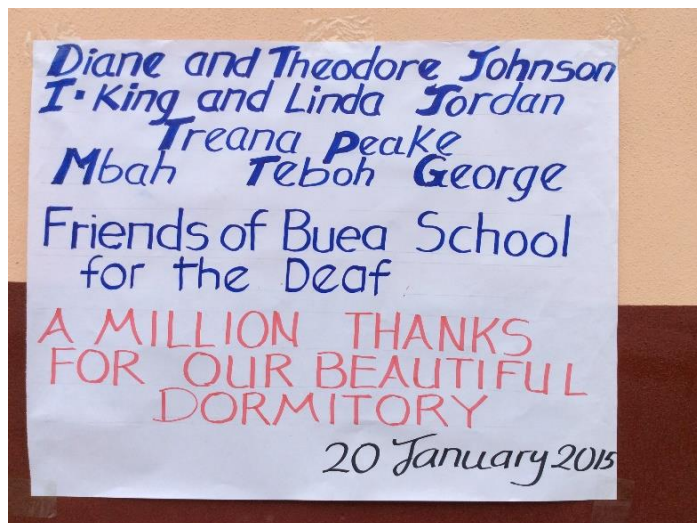 Diane and Theodore Johnson
I. King and Linda Jordan
Treana Peake
Mbah Teboh George
Friends of Buea School
for the Deaf
A MILLION THANKS
FOR OUR BEAUTIFUL
DORMITORY
20 January 2015